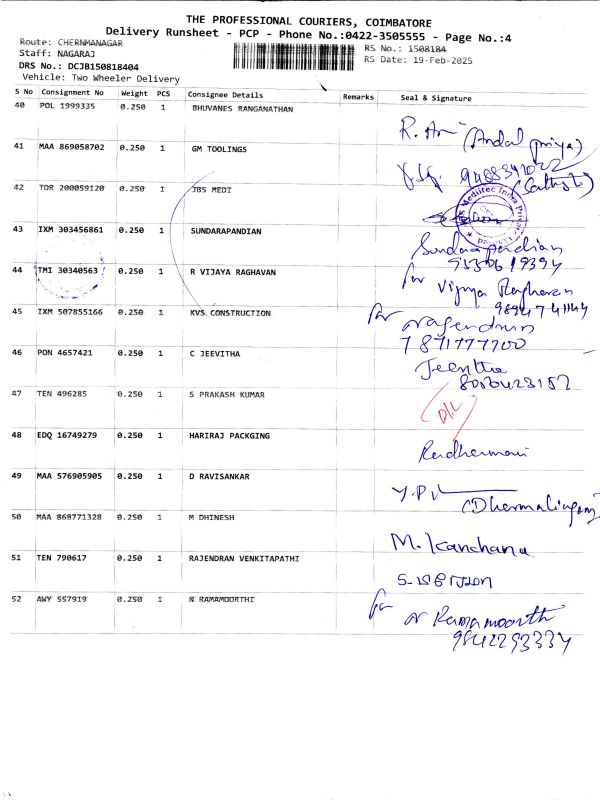 THE PROFESSIONAL COURIERS, COIMBATORE
Delivery Runsheet - PCP - Phone No.:0422-3505555 - Page No.:4
Route: CHERNMANAGAR
RS No.: 1508184
Staff: NAGARAJ
RS Date: 19-Feb-2025
DRS No.: DCJB150818404
Vehicle: Two Wheeler Delivery
S No Consignment No Weight PCS Consignee Details Remarks Seal & Signature
40 POL 1999335 0.250 1 BHUVANES RANGANATHAN
(Andal priya)
41 MAA 869058702 0.250 1 GM TOOLINGS
42 TDR 200059120 0.250 1 JBS MEDI
43 IXM 303456861 0.250 1 SUNDARAPANDIAN
Sundarapandian
44 TMI 30340563 0.250 1 R VIJAYA RAGHAVAN
for Vijaya Raghavan
45 IXM 507855166 0.250 1 KVS CONSTRUCTION
for
7871777700
46 PON 4657421 0.250 1 C JEEVITHA
Jeevitha
47 TEN 496285 0.250 1 S PRAKASH KUMAR
D/L
48 EDQ 16749279 0.250 1 HARIRAJ PACKGING
49 MAA 576905905 0.250 1 D RAVISANKAR
(Dhermalingam)
50 MAA 868771328 0.250 1 M DHINESH
M. Kanchana
51 TEN 790617 0.250 1 RAJENDRAN VENKITAPATHI
52 AWY 557919 0.250 1 N RAMAMOORTHI
for N Ramamoorth
9842293334